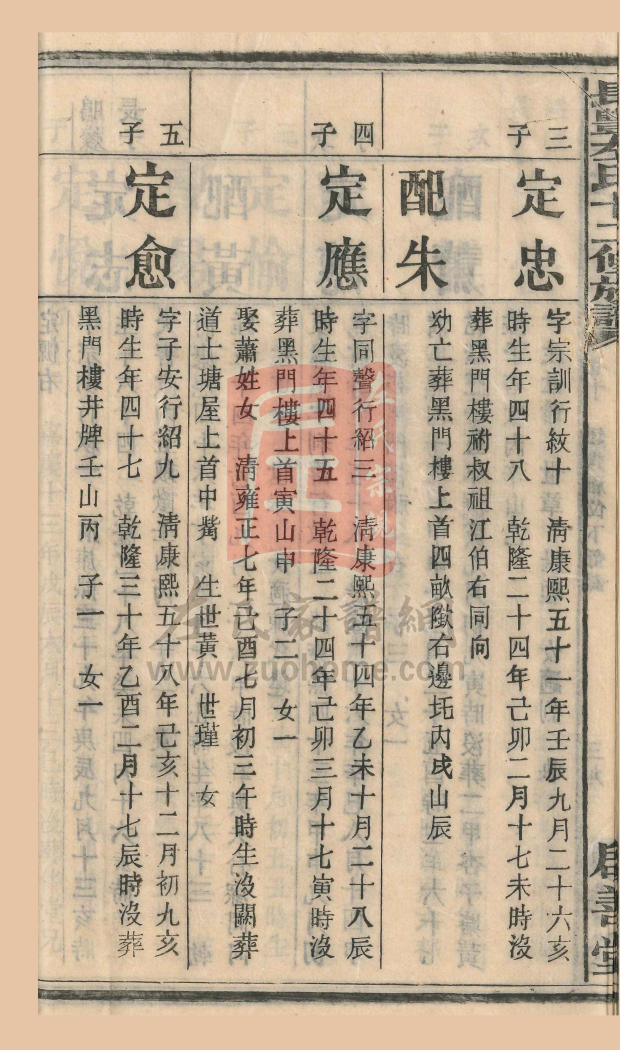 三子
定忠
字宗訓行紋十 清康熙五十一年壬辰九月二十六亥
時生年四十八 乾隆二十四年己卯二月十七未時沒
葬黑門樓祔叔祖江伯右同向
配朱
幼亡葬黑門樓上首四畝墩右邊圫內戌山辰
四子
定應
字同聲行紹三 清康熙五十四年乙未十月二十八辰
時生年四十五 乾隆二十四年己卯三月十七寅時沒
葬黑門樓上首寅山申 子二 女一
娶蕭姓女 清雍正七年己酉七月初三午時生沒闕葬
道士塘屋上首中嘴 生世黃 世瑾 女
五子
定愈
字子安行紹九 清康熙五十八年己亥十二月初九亥
時生年四十七 乾隆三十年乙酉二月十七辰時沒葬
黑門樓井牌壬山丙 子一 女一
左氏十二修族譜
啟善堂
左氏家譜網
www.zuohome.com